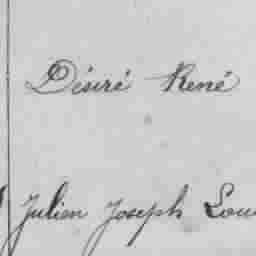 Désiré René
Julien Joseph